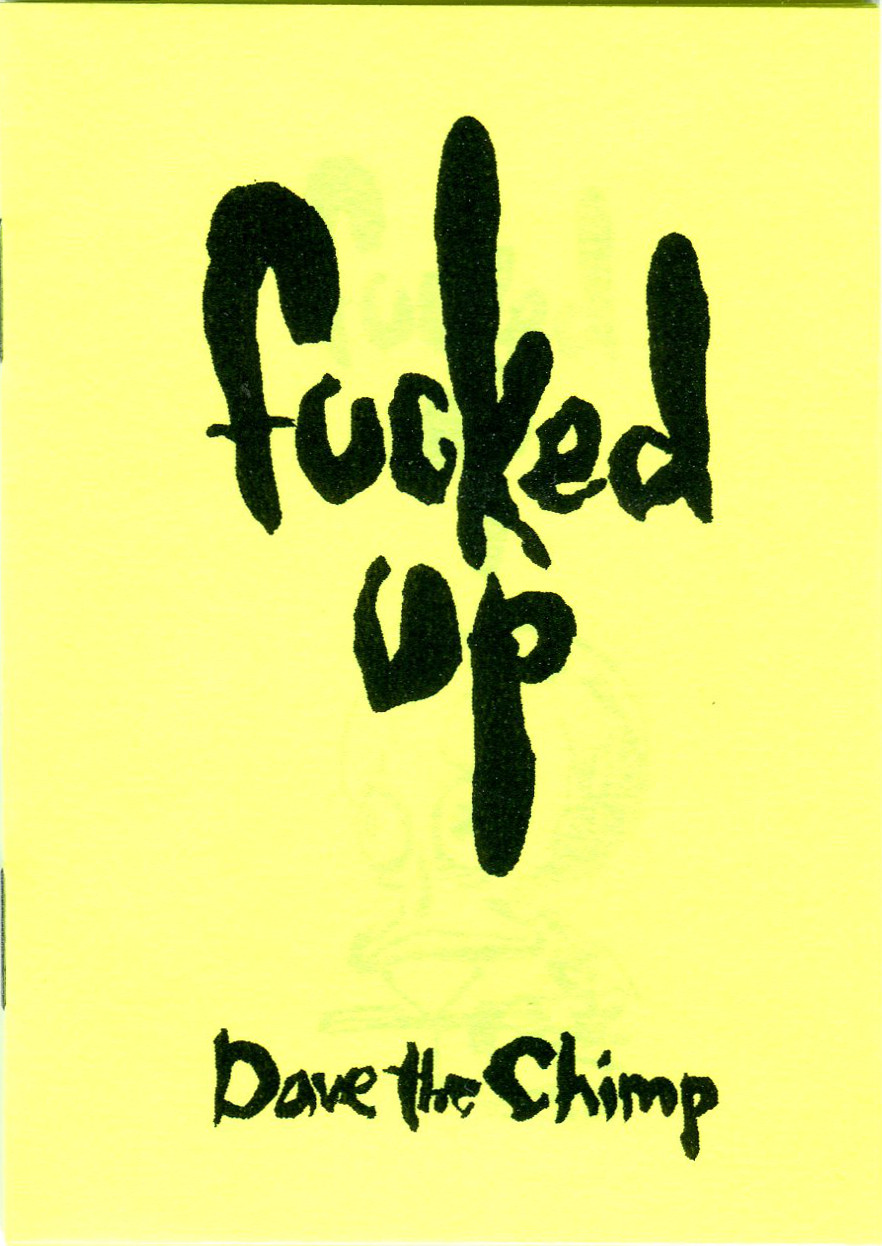 fucked
up
Dave the Chimp